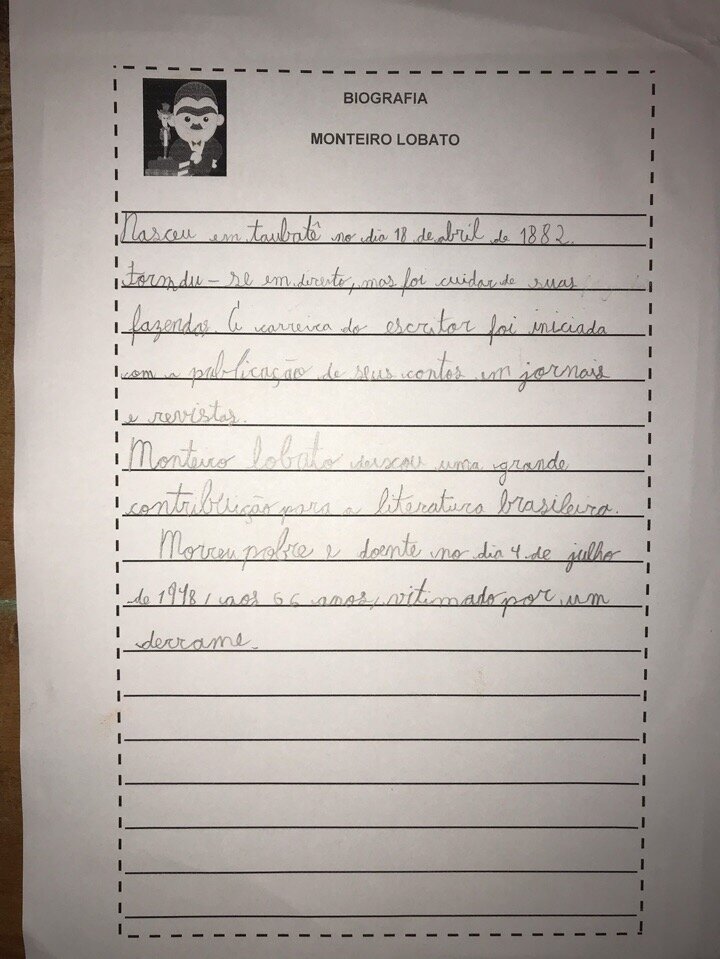 BIOGRAFIA
MONTEIRO LOBATO
Nasceu em taubatê no dia 18 de abril de 1882.
Formdu-se em direito, mas foi cuidar de suas
fazendas. A carreira do escritor foi iniciada
com a publicação de seus contos em jornais
e revistas.
Monteiro lobato deixou uma grande
contribuição para a literatura brasileira.
Morreu pobre e doente no dia 4 de julho
de 1948, aos 66 anos, vitimado por um
derrame.